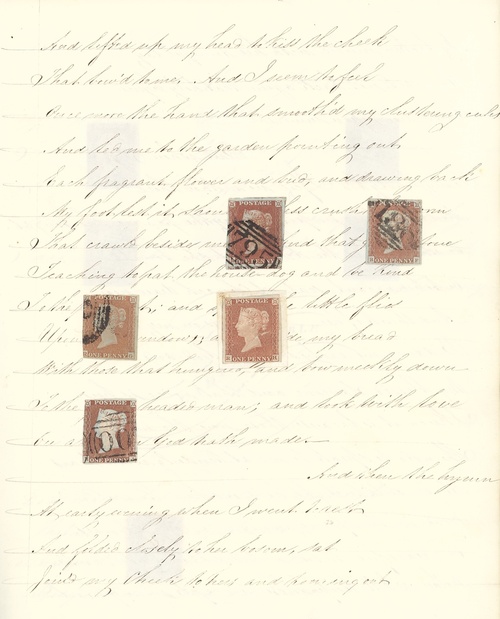 And lifted up my head to kiss the cheek
That bow'd to me. And I seem to feel
Once more the hand that smooth'd my clustering curls
And led me to the garden pointing out
Each fragrant flower and bud, and drawing back
My foot lest it should crush
That crawl'd beside me And that
Teaching to pat the house-dog and be kind
To the and little flies
my bread
With those that hunger'd, and bow meekly down
To the headed man; and look with love
On God hath made.
And then the hymn
At early evening when I went to rest
And folded closely to her bosom, sat
Join'd my cheek to hers and pouring out
POSTAGE
ONE PENNY
79
POSTAGE
ONE PENNY
POSTAGE
ONE PENNY
POSTAGE
ONE PENNY
POSTAGE
ONE PENNY